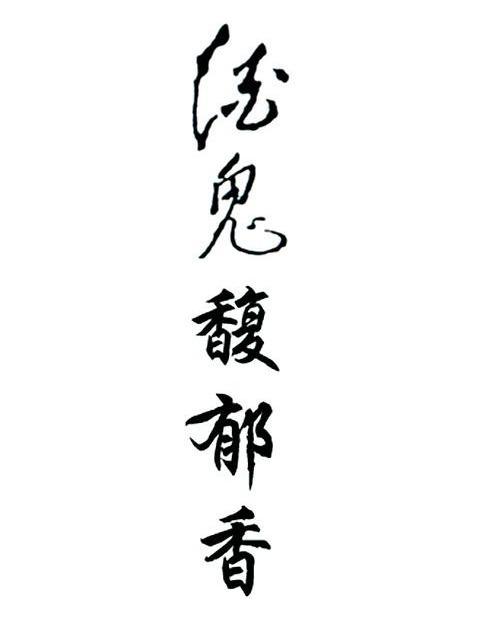 酒鬼馥郁香